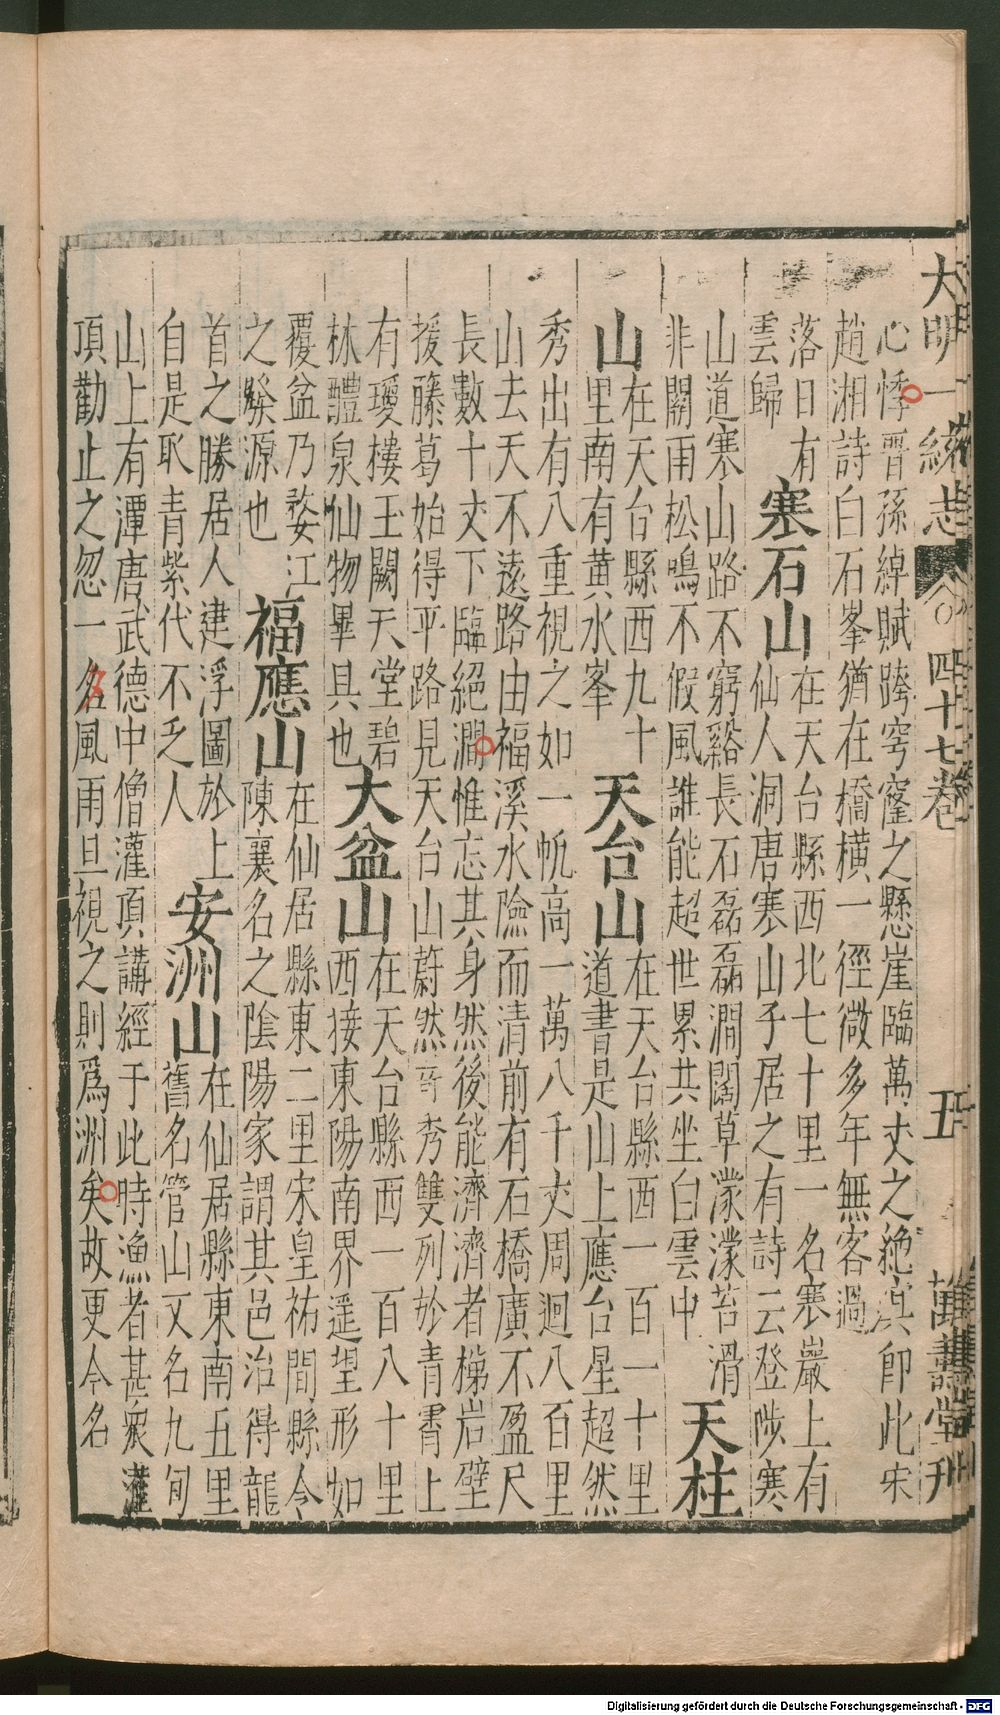 大明一統志 卷 四十七卷 五 萬壽堂刊
心悸晋孫綽賦跨穹窿之懸崖臨萬丈之絶冥即此宋
趙湘詩白石峯猶在橋横一徑微多年無客過
落日有
雲歸
寒石山
在天台縣西北七十里一名寒巖上有
仙人洞唐寒山子居之有詩云登陟寒
山道寒山路不窮谿長石磊磊澗闊草濛濛苔滑
非關雨松鳴不假風誰能超世累共坐白雲中
天柱
山
在天台縣西九十
里南有黄水峯
天台山
在天台縣西一百一十里
道書是山上應台星超然
秀出有八重視之如一帆高一萬八千丈周迴八百里
山去天不遠路由福溪水險而清前有石橋廣不盈尺
長數十丈下臨絶澗惟忘其身然後能濟濟者梯岩壁
援藤葛始得平路見天台山蔚然竒秀雙列於青霄上
有瓊樓玉闕天堂碧
林醴泉仙物畢具也
大盆山
在天台縣西一百八十里
西接東陽南界遥望形如
覆盆乃婺江
之發源也
福應山
在仙居縣東二里宋皇祐間縣令
陳襄名之陰陽家謂其邑治得龍
首之勝居人建浮圖於上
自是取青紫代不乏人
安洲山
在仙居縣東南五里
舊名管山又名九旬
山上有潭唐武德中僧灌頂講經于此時漁者甚衆灌
頂勸止之忽一夕風雨旦視之則爲洲矣故更今名
Digitalisierung gefördert durch die Deutsche Forschungsgemeinschaft - DFG